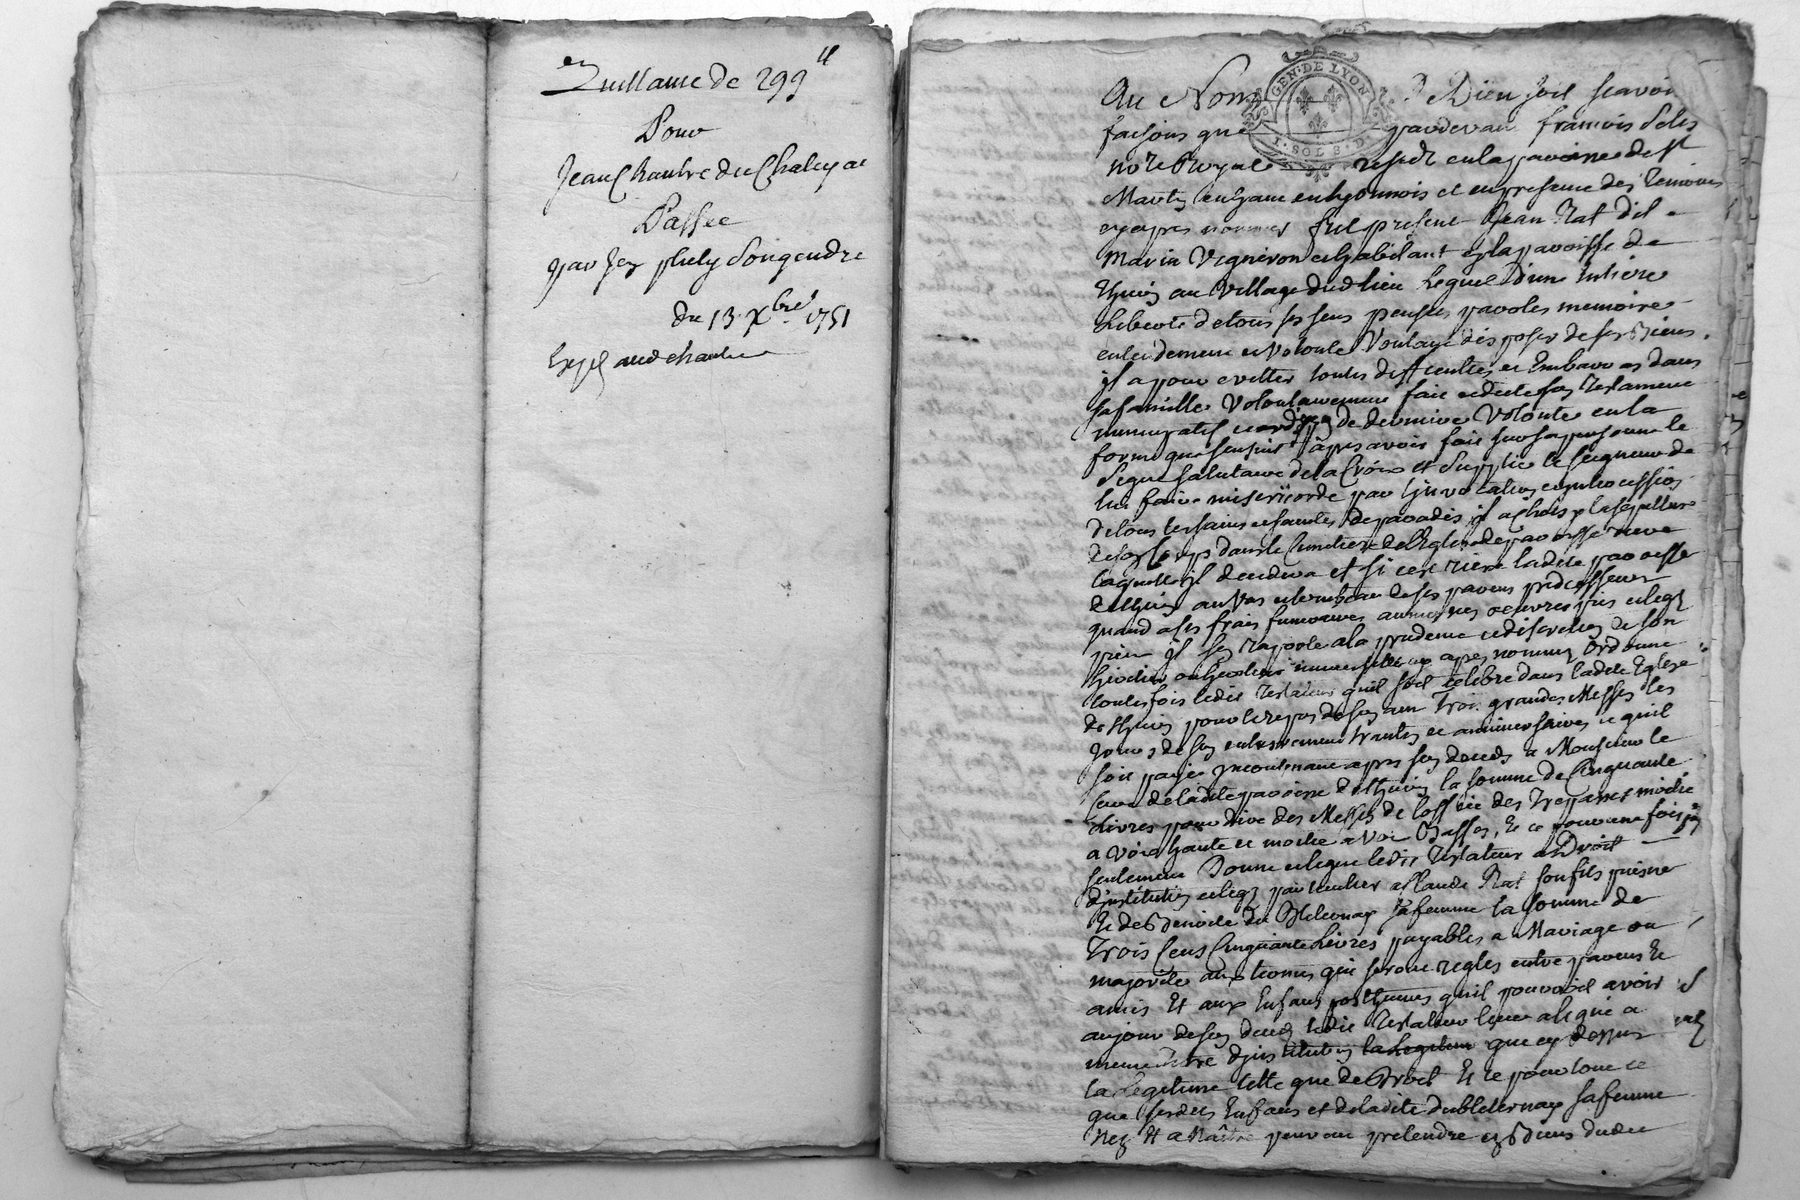 Quittance de 299 ₶
Pour
Jean Chantre de Chaley
Passée
par
du 13 Xbre 1751
Exp aud chantre
GEN. DE LYON
1. SOL 8. D
Au Nom de Dieu soit scavoir
faisons que pardevant francois
nore Royal residt en la paroisse de St
Martin en lyonnois et en presence des temoins
cy apres nommes fut present Jean Rat dit
Maria Vigneron et habitant en la paroisse de
au Village dud lieu Lequel dune Entiere
Liberté de tous ses sens pensées paroles memoire
entendement et Volonté Voulant disposer de ses Biens
il a pour evitter toutes difficultés et Embaras dans
sa famille Volontairement fait et dicté son Testament
nuncupatif de derniere Volonté en la
forme que sensuit apres avoir fait sur sa personne le
Signe salutaire de la Croix et Supplié le seigneur de
lui faire misericorde par et intercession
de tous les saints et saintes de paradis il a choisy la sepulture
de son Corps dans le Cimetiere de l'Eglise de paroisse riere
laquelle il decedera et si cest riere ladite paroisse
de au Vas et tombeau de ses parens predecesseurs
quand a ses frais funeraires aumones oeuvres pies et legs
pieux il sen raporte a la prudence et discretion de son
heritier ou heritiere apres nommez Ordonne
toutesfois ledit Testateur quil soit celebré dans ladite Eglise
de pour le repos de son ame Trois grandes Messes les
jours de son enterrement trantin et anniversaire et quil
soit payé incontinant apres son deceds a Monsieur le
Curé de ladite paroisse de la somme de Cinquante
Livres pour dire des Messes de loffice des Trepasses moitié
a Voix haute et moitié a Voix Basse, Et ce pour une fois
seulement Donne et legue ledit Testateur a Droit
dinstitution et legs particulier a Claude Rat son fils puisné
Et de Benoite du sa femme la somme de
Trois Cens Cinquante Livres payables a Mariage ou
majorité aux termes qui seront reglés entre parens Et
amis Et aux Enfans posthumes quil pourroit avoir
au jour de son deceds ledit Testateur leur a legué a
meme titre dinstitution que cy dessus
la Legitime telle que de Droit Et ce pour tout ce
que sesdits Enfans et de ladite sa femme
Nez Et a Naître peuvent pretendre es Biens dudit